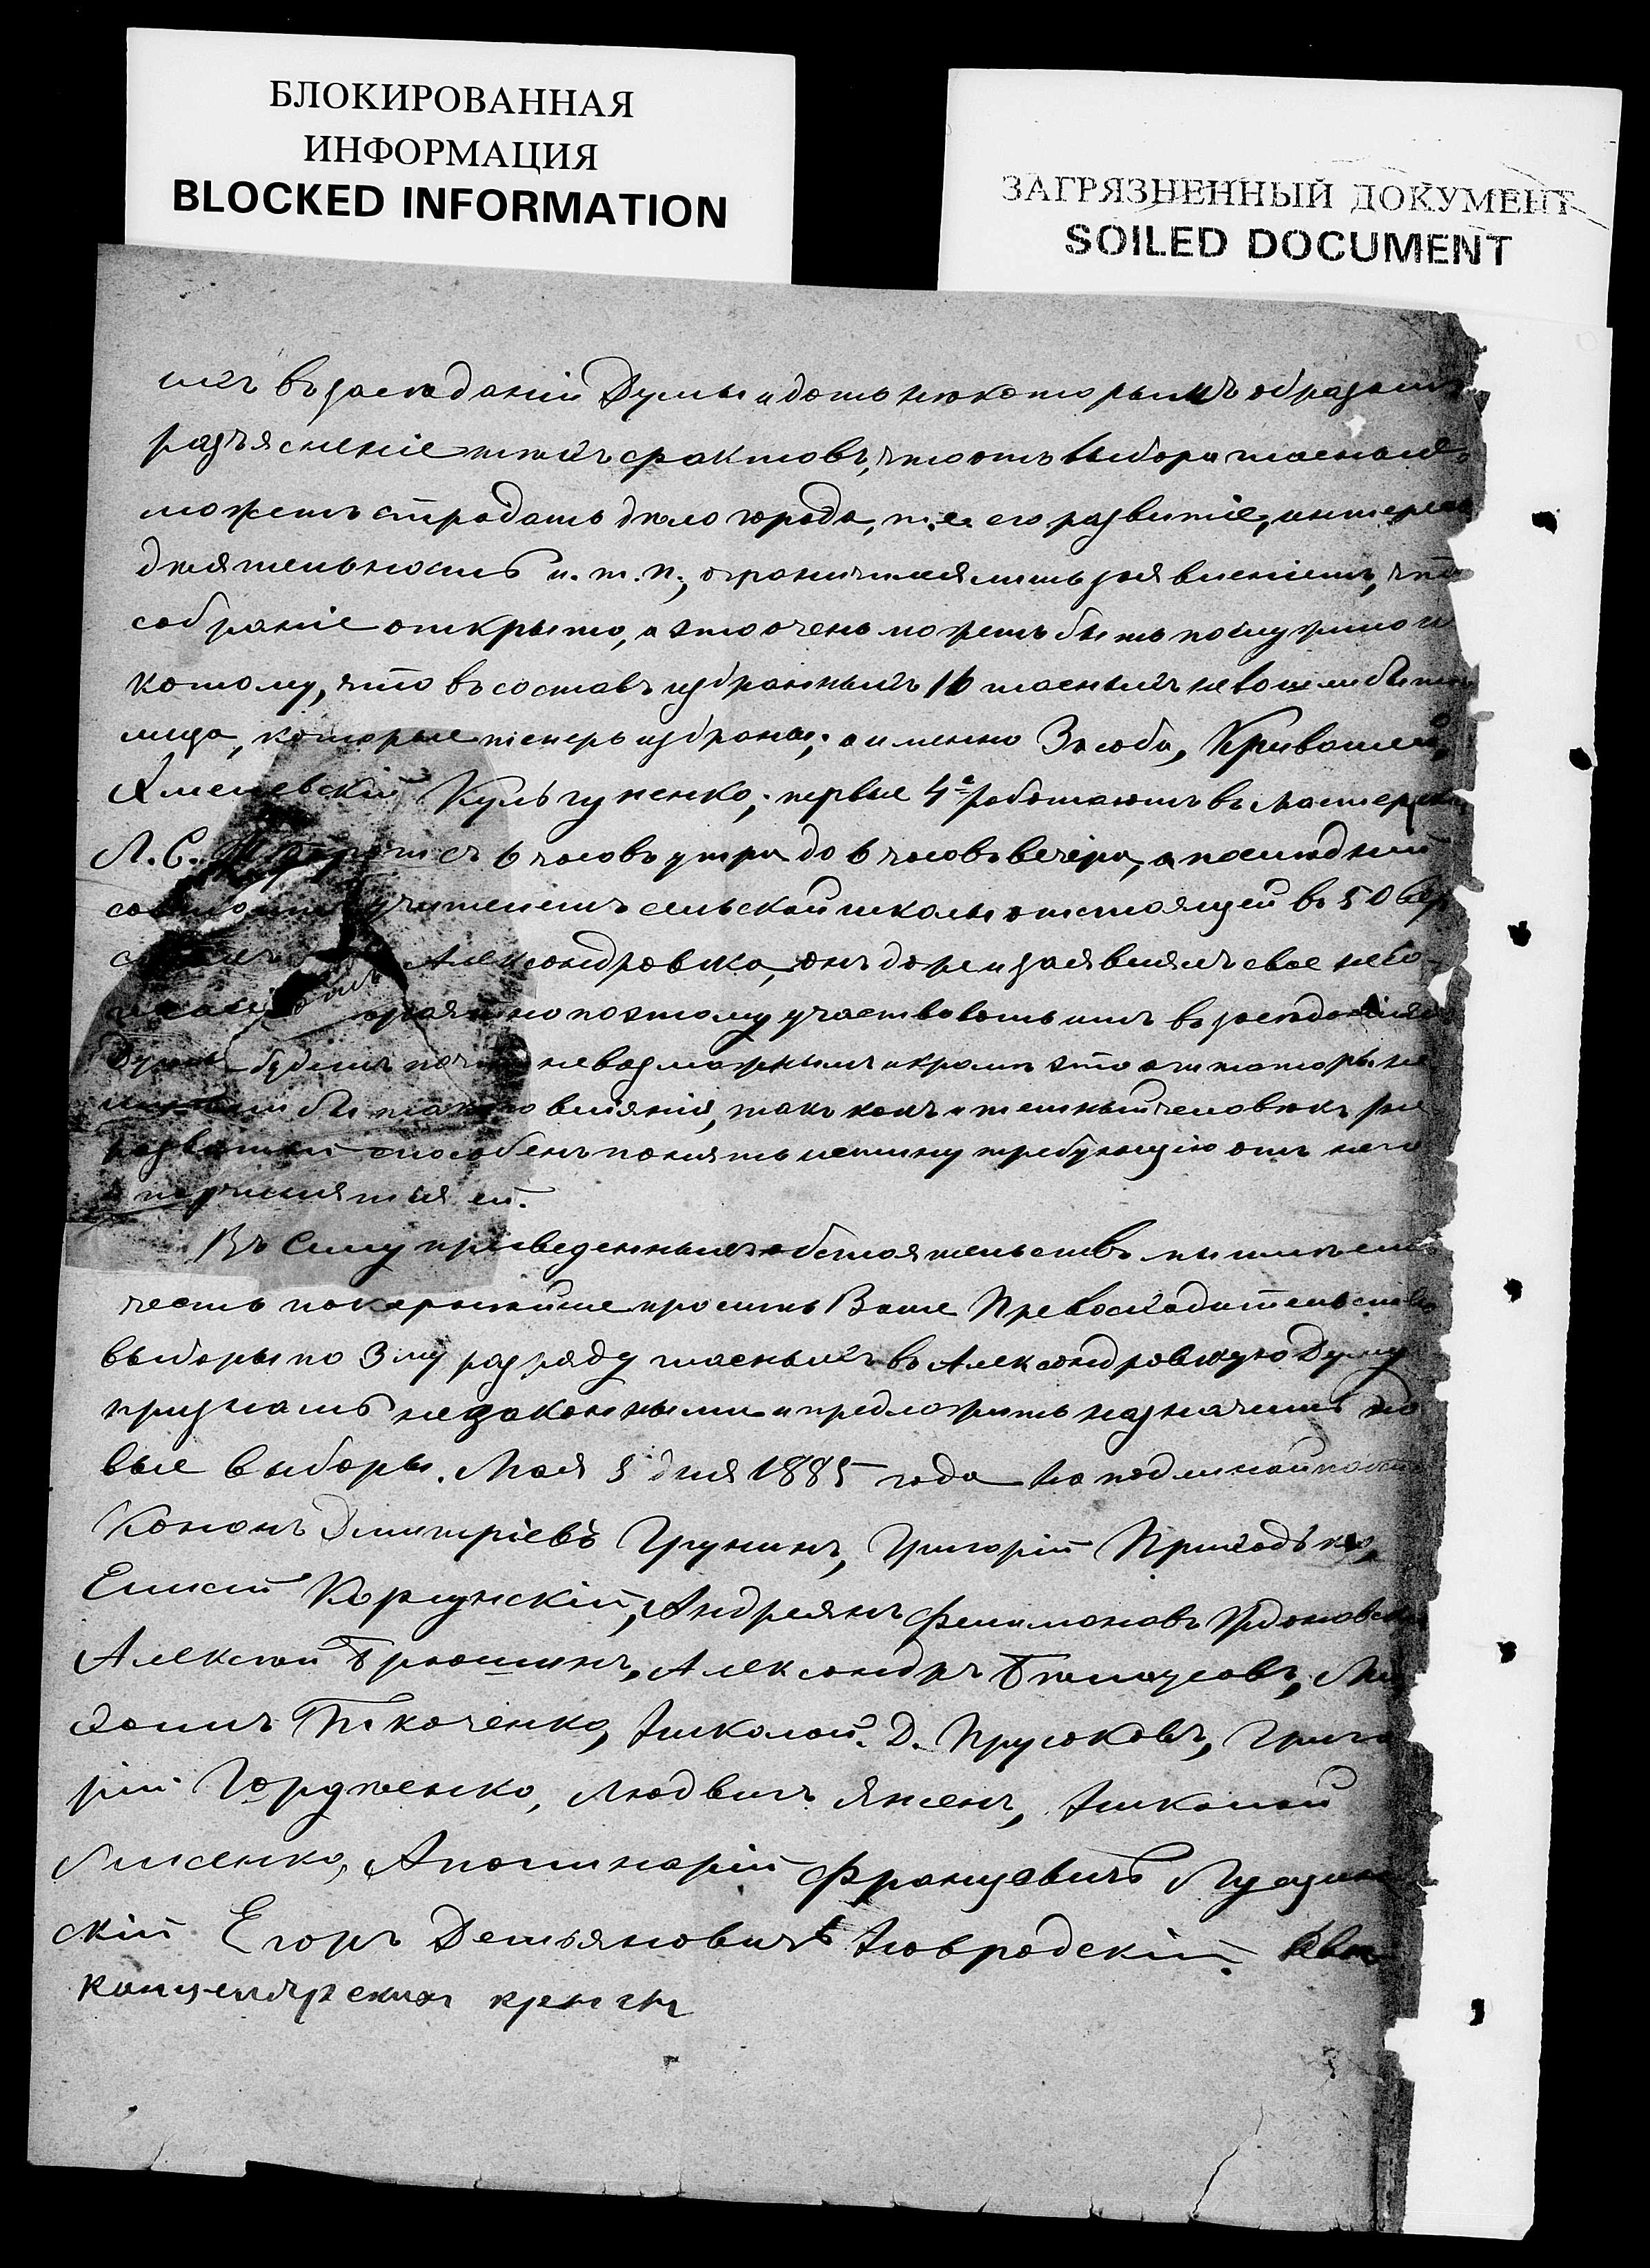 БЛОКИРОВАННАЯ
ИНФОРМАЦИЯ
BLOCKED INFORMATION
ЗАГРЯЗНЕННЫЙ ДОКУМЕНТ
SOILED DOCUMENT
ихъ въ заседаніи Думы и дать некоторымъ образомъ
разъясненіе техъ фактовъ, что отъ выбора гласныхъ
можетъ страдать дело города, т.е. его развитіе, интересы
деятельность и. т. п., ограничился лишь заявленіемъ, что
собраніе открыто, а это очень можетъ быть послужило и
тому, что въ составъ избранныхъ 16 гласныхъ не вошли бы те
лица, которые теперь избраны; а именно Зазюба, Кривошей,
Хмелевскій Кульгуненко; первые 4е работаютъ въ мастерск
Л. С. ж. дороги съ 6 часовъ утра до 6 часовъ вечера, а последній
состоитъ учителемъ сельской школы отстоящей въ 50 вер
отъ Александровска, онъ даже и заявлялъ свое неже-
но поэтому участвовать имъ въ заседаніяхъ
Думы будетъ почти невозможнымъ и кроме этого агитаторы не
имели бы такого вліянія, такъ какъ и темный человекъ
способенъ понять истину требующую отъ него
ей.
Въ Силу приведенныхъ обстоятельствъ мы имеемъ
честь покорнейше просить Ваше Превосходительство
выборы по 3му разряду гласныхъ въ Александровскую Думу
признать незаконными и предложить назначить но
вые выборы. Мая 5 дня 1885 года На подлинной
Кононъ Дмитріевъ Грунинъ, Григорій Приходько,
Елисей Корсунскій, Андреянъ Филимоновъ
Алексей Брюшинъ, Александръ
Ткаченко, Николай. Д. Прусаковъ, Григо
рій Гордиенко, Людвигъ Янсенъ, Николай
Лисенко, Аполинарій Францевичъ
скій Егоръ Демьяновичъ Новродскій.